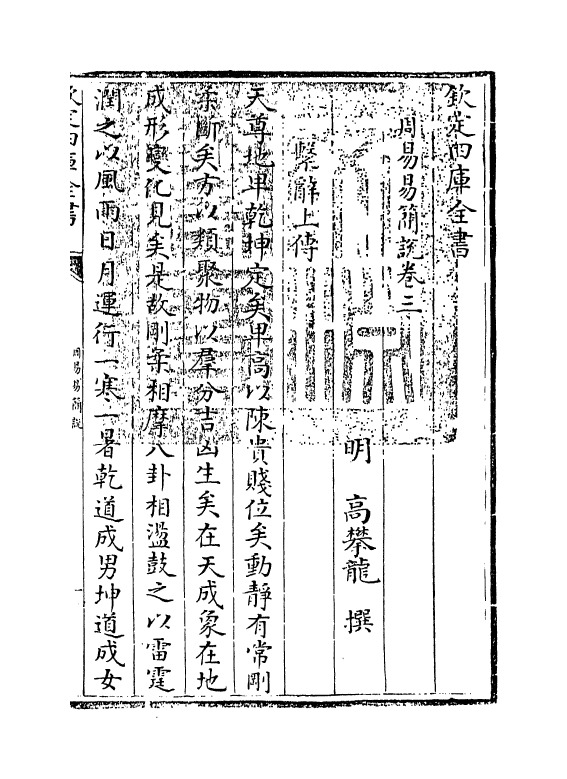 欽定四庫全書
周易易簡說卷三
明 高攀龍 撰
繫辭上傳
天尊地卑乾坤定矣卑高以陳貴賤位矣動靜有常剛
柔斷矣方以類聚物以羣分吉凶生矣在天成象在地
成形變化見矣是故剛柔相摩八卦相盪鼓之以雷霆
潤之以風雨日月運行一寒一暑乾道成男坤道成女
欽定四庫全書
周易易簡說
一